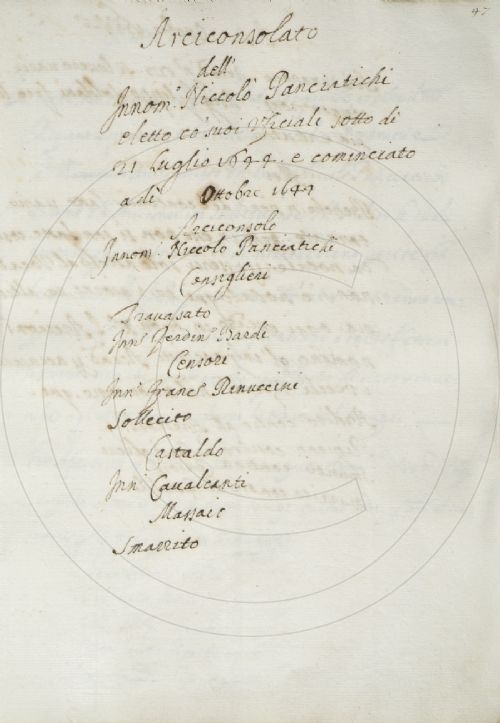 47
Arciconsolato
dell'
Innom.º Niccolò Panciatichi
eletto co' suoi Ufiziali sotto di
21 Luglio 1644. e cominciato
a dì Ottobre 1644
Arciconsolo
Innom.º Niccolo Panciatichi
Consiglieri
Travasato
Inn.º Ferdin.º Bardi
Censori
Inn.º Franc.º Rinuccini
Sollecito
Castaldo
Inn.º Cavalcanti
Massaio
Smarrito